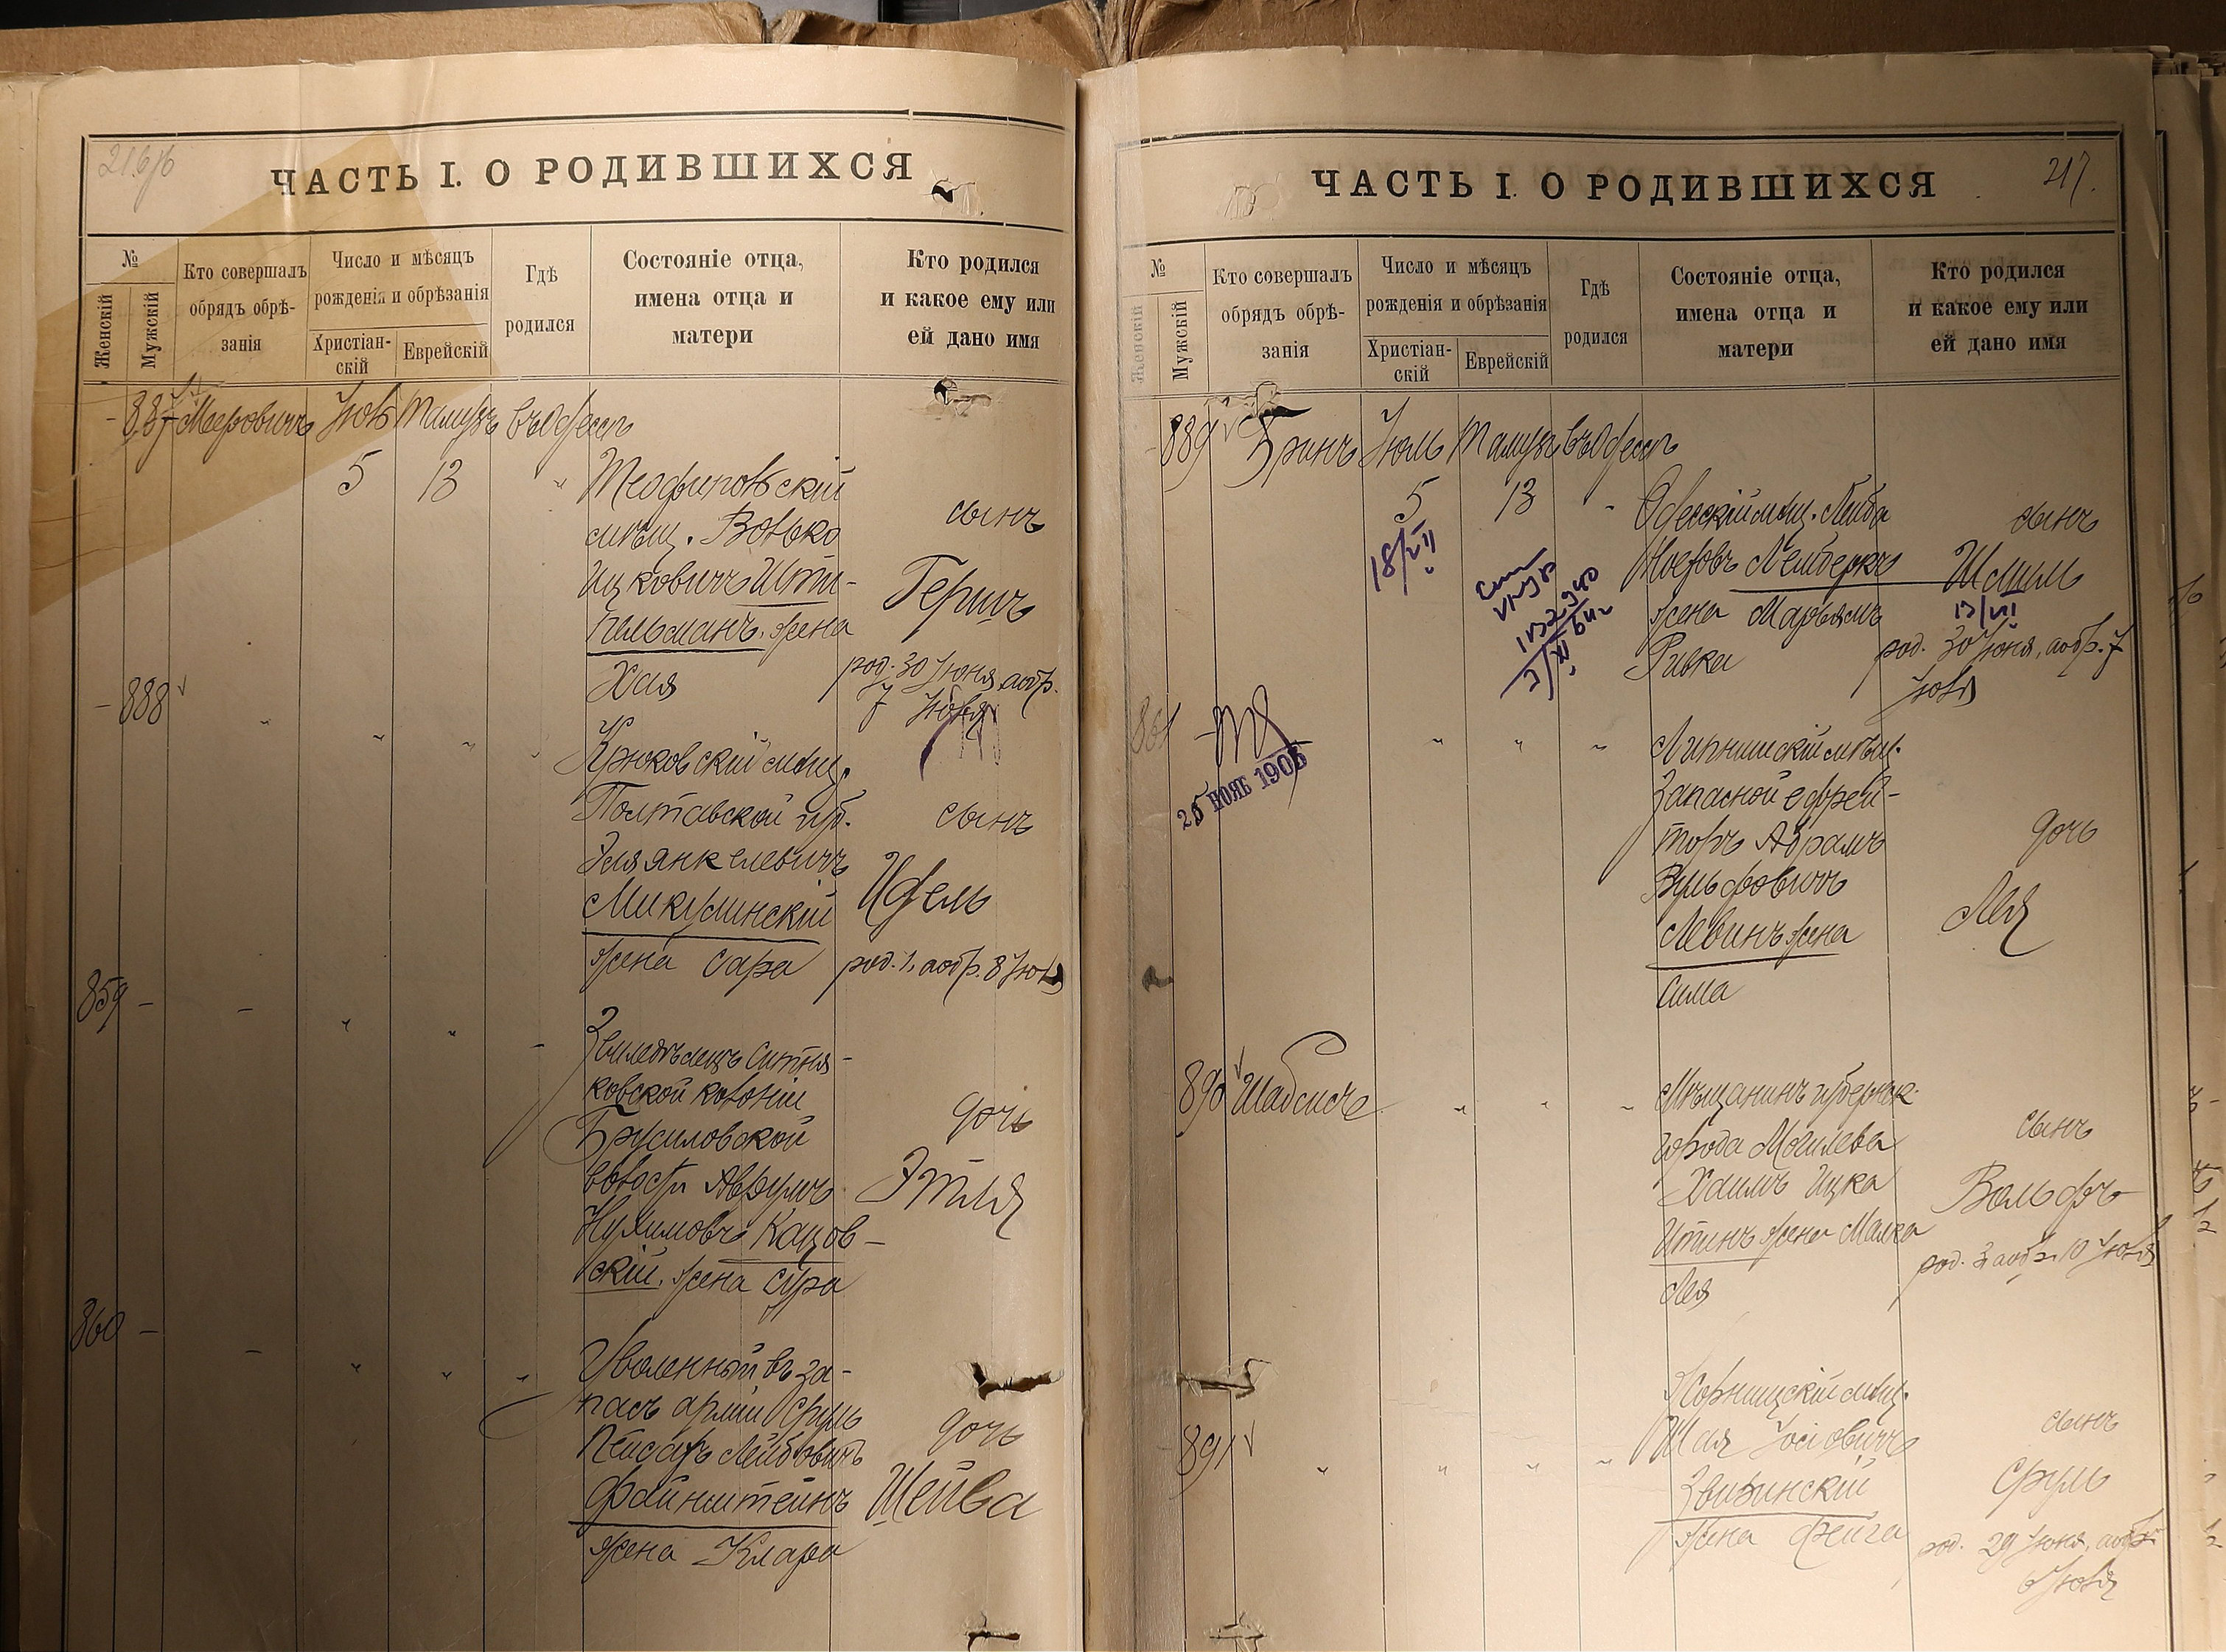 216 об
ЧАСТЬ I. О РОДИВШИХСЯ
№
Женскій
Мужскій
Кто совершалъ
обрядъ обрѣ-
занія
Число и мѣсяцъ
рожденія и обрѣзанія
Христіан-
скій
Еврейскій
Гдѣ
родился
Состояніе отца,
имена отца и
матери
Кто родился
и какое ему или
ей дано имя
- 887 Мееровичъ Іюль Тамузъ въ Одессѣ
5 13 "
Теофипольскій
мѣщ. Волько
Ицковичъ Шти-
пельманъ, жена
Хая
сынъ
Гершъ
род. 30 Іюня, а обр.
7 Іюля
- 888 " " " "
Крюковскій мѣщ.
Полтавской губ.
Эля Янкелевичъ
Микулинскій
жена Сара
сынъ
Идель
род. 1, а обр. 8 Іюля
859 - - " " -
Земледѣлецъ Ситня-
ковской колоніи
Брусиловской
волости Аврумъ
Нухимовъ Кацов-
скій, жена Сура
дочь
Этля
860 - - " " "
Уволенный въ за-
пасъ арміи Сруль
Пейсахъ Лейбовичъ
Файнштейнъ
жена Клара
дочь
Шейва
217.
ЧАСТЬ I. О РОДИВШИХСЯ
№
Женскій
Мужскій
Кто совершалъ
обрядъ обрѣ-
занія
Число и мѣсяцъ
рожденія и обрѣзанія
Христіан-
скій
Еврейскій
Гдѣ
родился
Состояніе отца,
имена отца и
матери
Кто родился
и какое ему или
ей дано имя
- 889 Бринъ Іюль Тамузъ въ Одессѣ
5 13 "
18/VII
Одесскій мѣщ. Лейба
Лембергъ
жена Марьямъ
Ривка
сынъ
Шмиль
13/VII
род. 30 Іюня, а обр. 7
Іюля
861 - " " "
25 НОЯБ 1905
мѣщ.
Запасной ефрей-
торъ Абрамъ
Вульфовичъ
Левинъ жена
Сима
дочь
Лея
890 Шабсисъ " " "
Мѣщанинъ губернск.
города Могилева
Хаимъ Ицка
Итинъ жена Малка
Лея
сынъ
Вольфъ
род. 3, а обр. 10 Іюля
891 " " " "
мѣщ.
Шая Іосіовичъ
жена Фейга
сынъ
Сруль
род. 29 Іюня, а обр.
6 Іюля